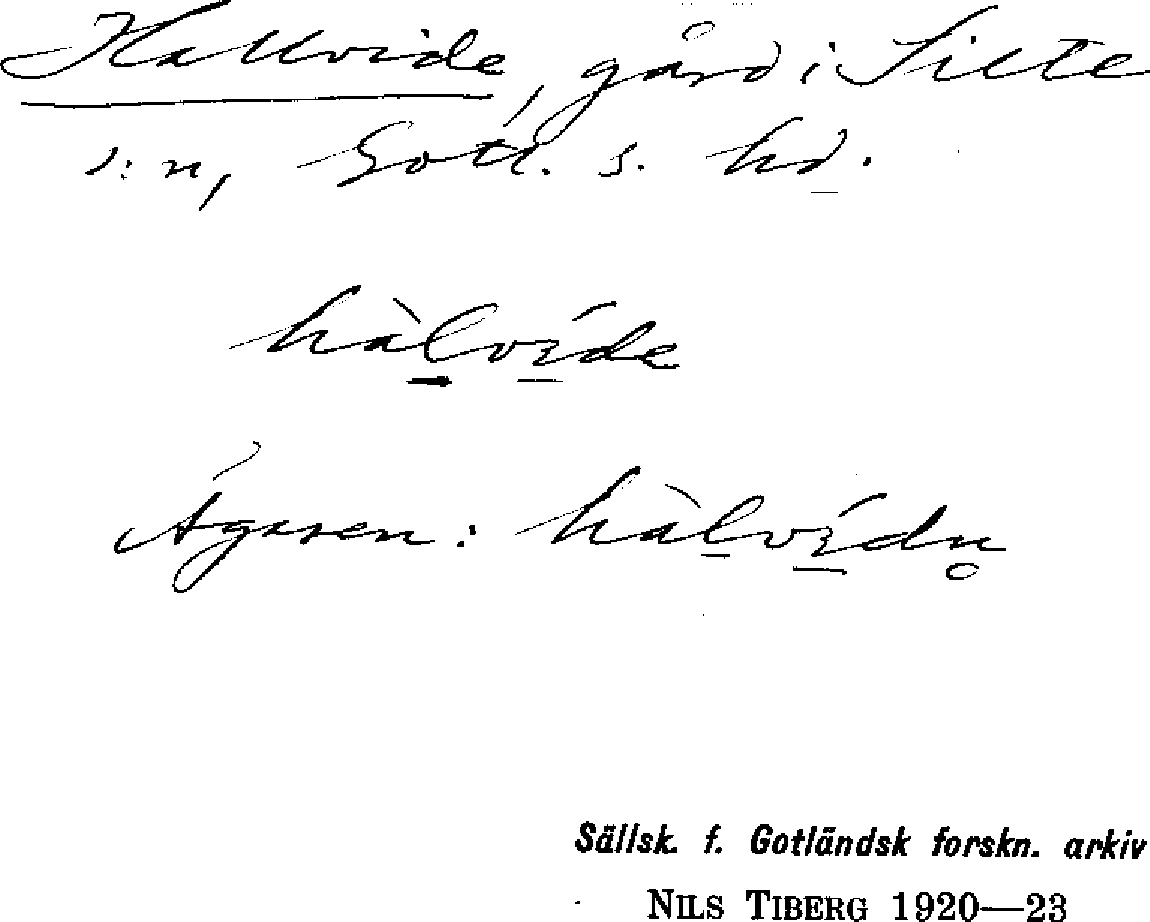 Hallvide, gård i Silte
s:n, Gotl. s. hd.
hàlvíde
Ägaren: hàlvídn̥
Sällsk. f. Gotländsk forskn. arkiv
NILS TIBERG 1920—23